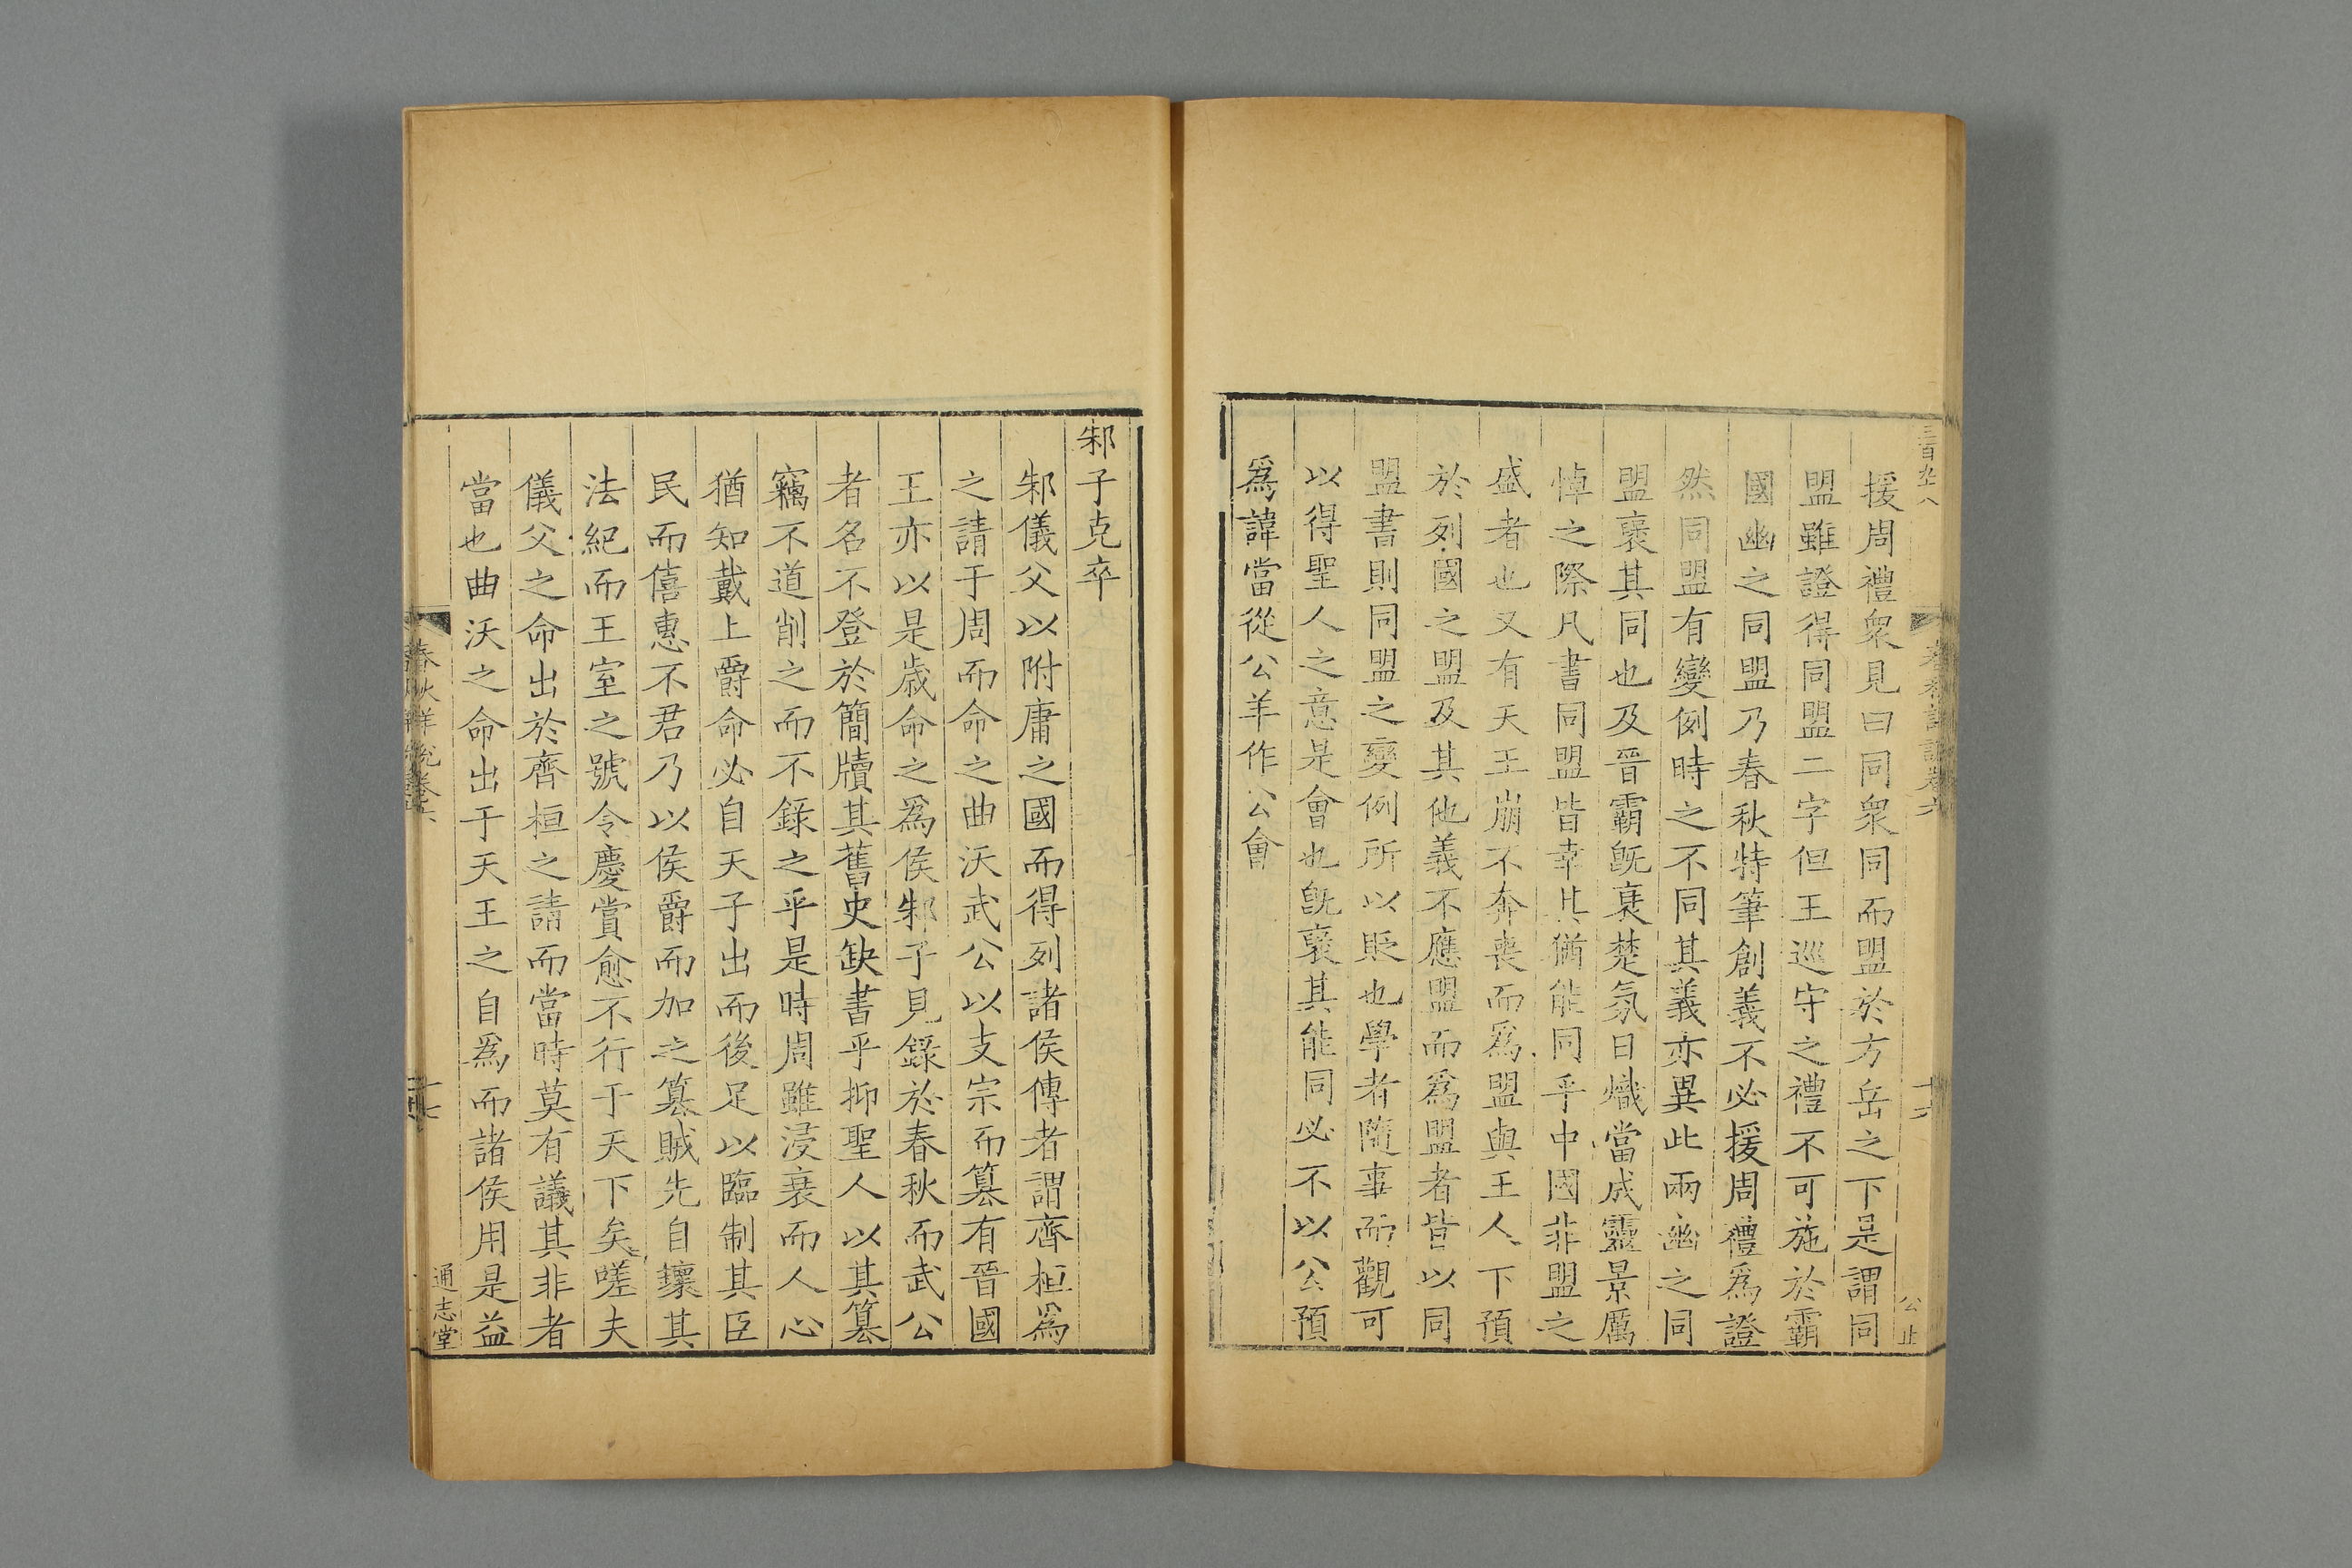 援周禮衆見曰同衆同而盟於方岳之下是謂同
盟雖證得同盟二字但王巡守之禮不可施於霸
國幽之同盟乃春秋特筆創義不必援周禮爲證
然同盟有變例時之不同其義亦異此兩幽之同
盟襃其同也及晉霸旣衰楚氛日熾當成靈景厲
悼之際凡書同盟皆幸其猶能同乎中國非盟之
盛者也又有天王崩不奔喪而爲盟與王人下預
於列國之盟及其他義不應盟而爲盟者皆以同
盟書則同盟之變例所以貶也學者隨事而觀可
以得聖人之意是會也旣襃其能同必不以公預
爲諱當從公羊作公會
十六
邾子克卒
邾儀父以附庸之國而得列諸侯傳者謂齊桓爲
之請于周而命之曲沃武公以支宗而簒有晉國
王亦以是歲命之爲侯邾子見錄於春秋而武公
者名不登於簡牘其舊史缺書乎抑聖人以其簒
竊不道削之而不錄之乎是時周雖浸衰而人心
猶知戴上爵命必自天子出而後足以臨制其臣
民而僖惠不君乃以侯爵而加之簒賊先自壞其
法紀而王室之號令慶賞愈不行于天下矣嗟夫
儀父之命出於齊桓之請而當時莫有議其非者
當也曲沃之命出于天王之自爲而諸侯用是益
春秋詳說卷六
十七
通志堂